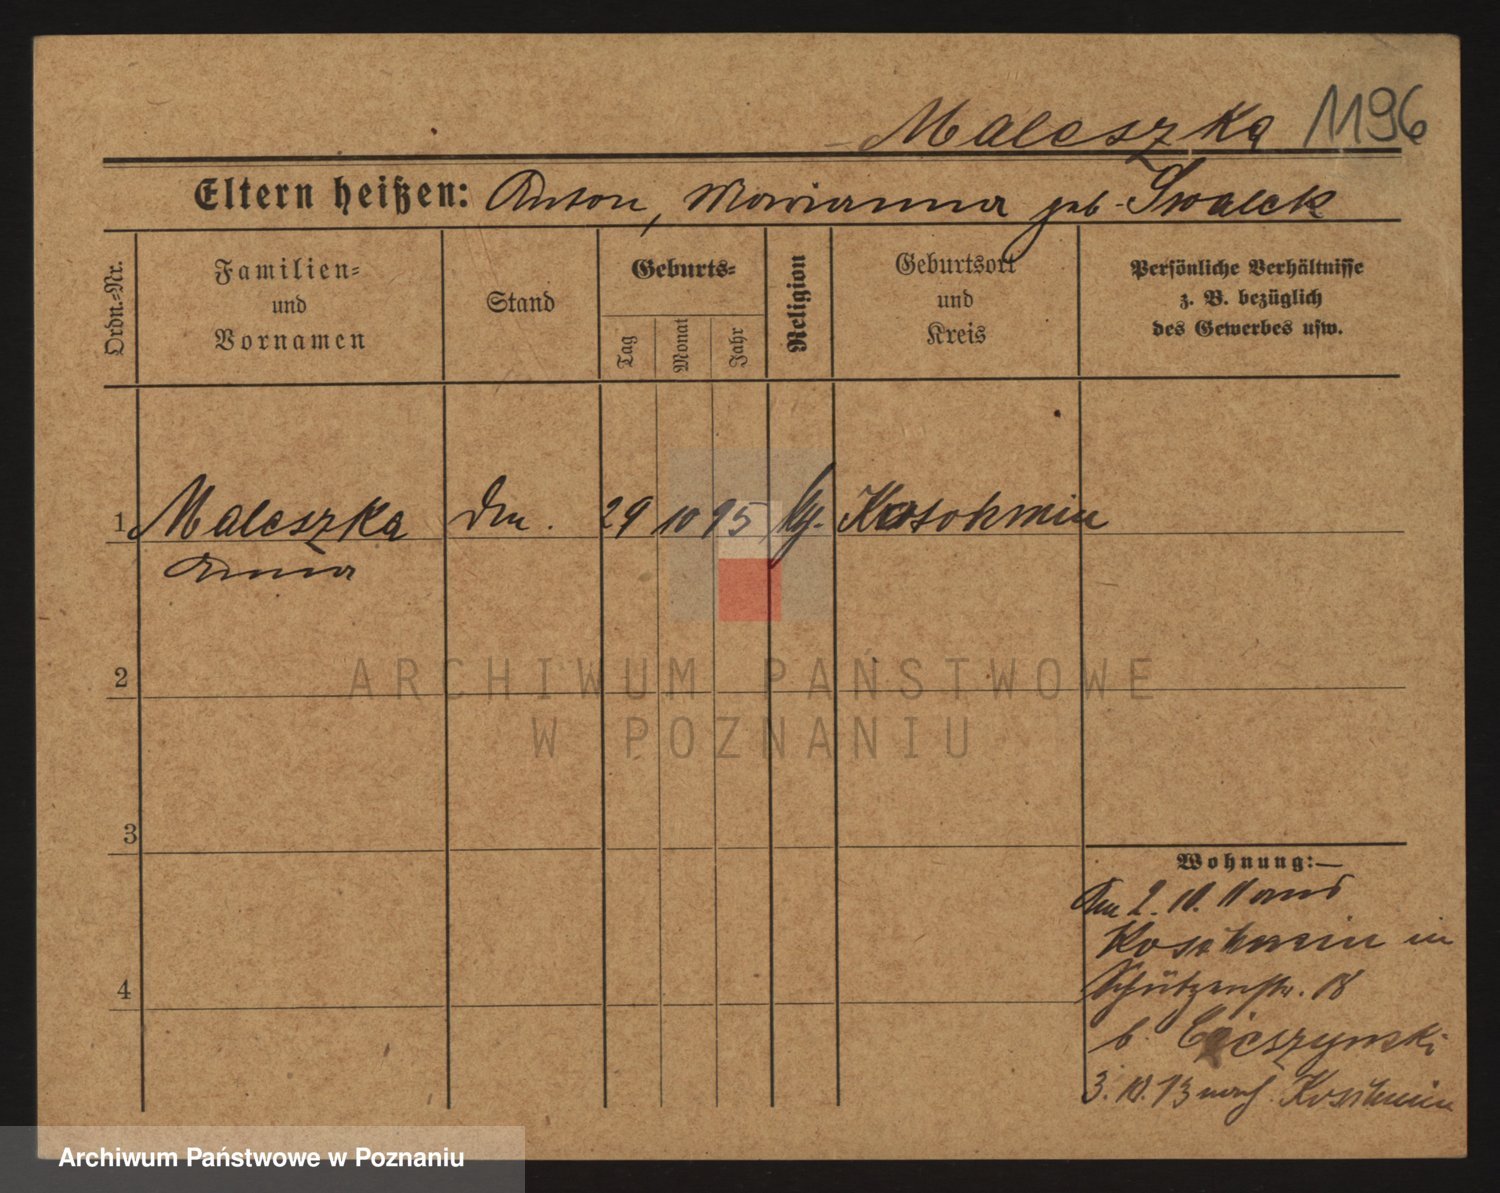 Maleszka 1196
Eltern heißen: Anton, Marianna geb. Swalek
Ordn.-Nr.
Familien-
und
Vornamen
Stand
Geburts-
Tag
Monat
Jahr
Religion
Geburtsort
und
Kreis
Persönliche Verhältnisse
z. B. bezüglich
des Gewerbes usw.
1 Maleszka 29 10 95 Koschmin
Anna
2
ARCHIWUM PAŃSTWOWE
W POZNANIU
3
4
Wohnung:
Am 2. 10. 11 aus
Koschmin in
Schützenstr. 18
b.
3. 10. 13 nach Koschmin
Archiwum Państwowe w Poznaniu